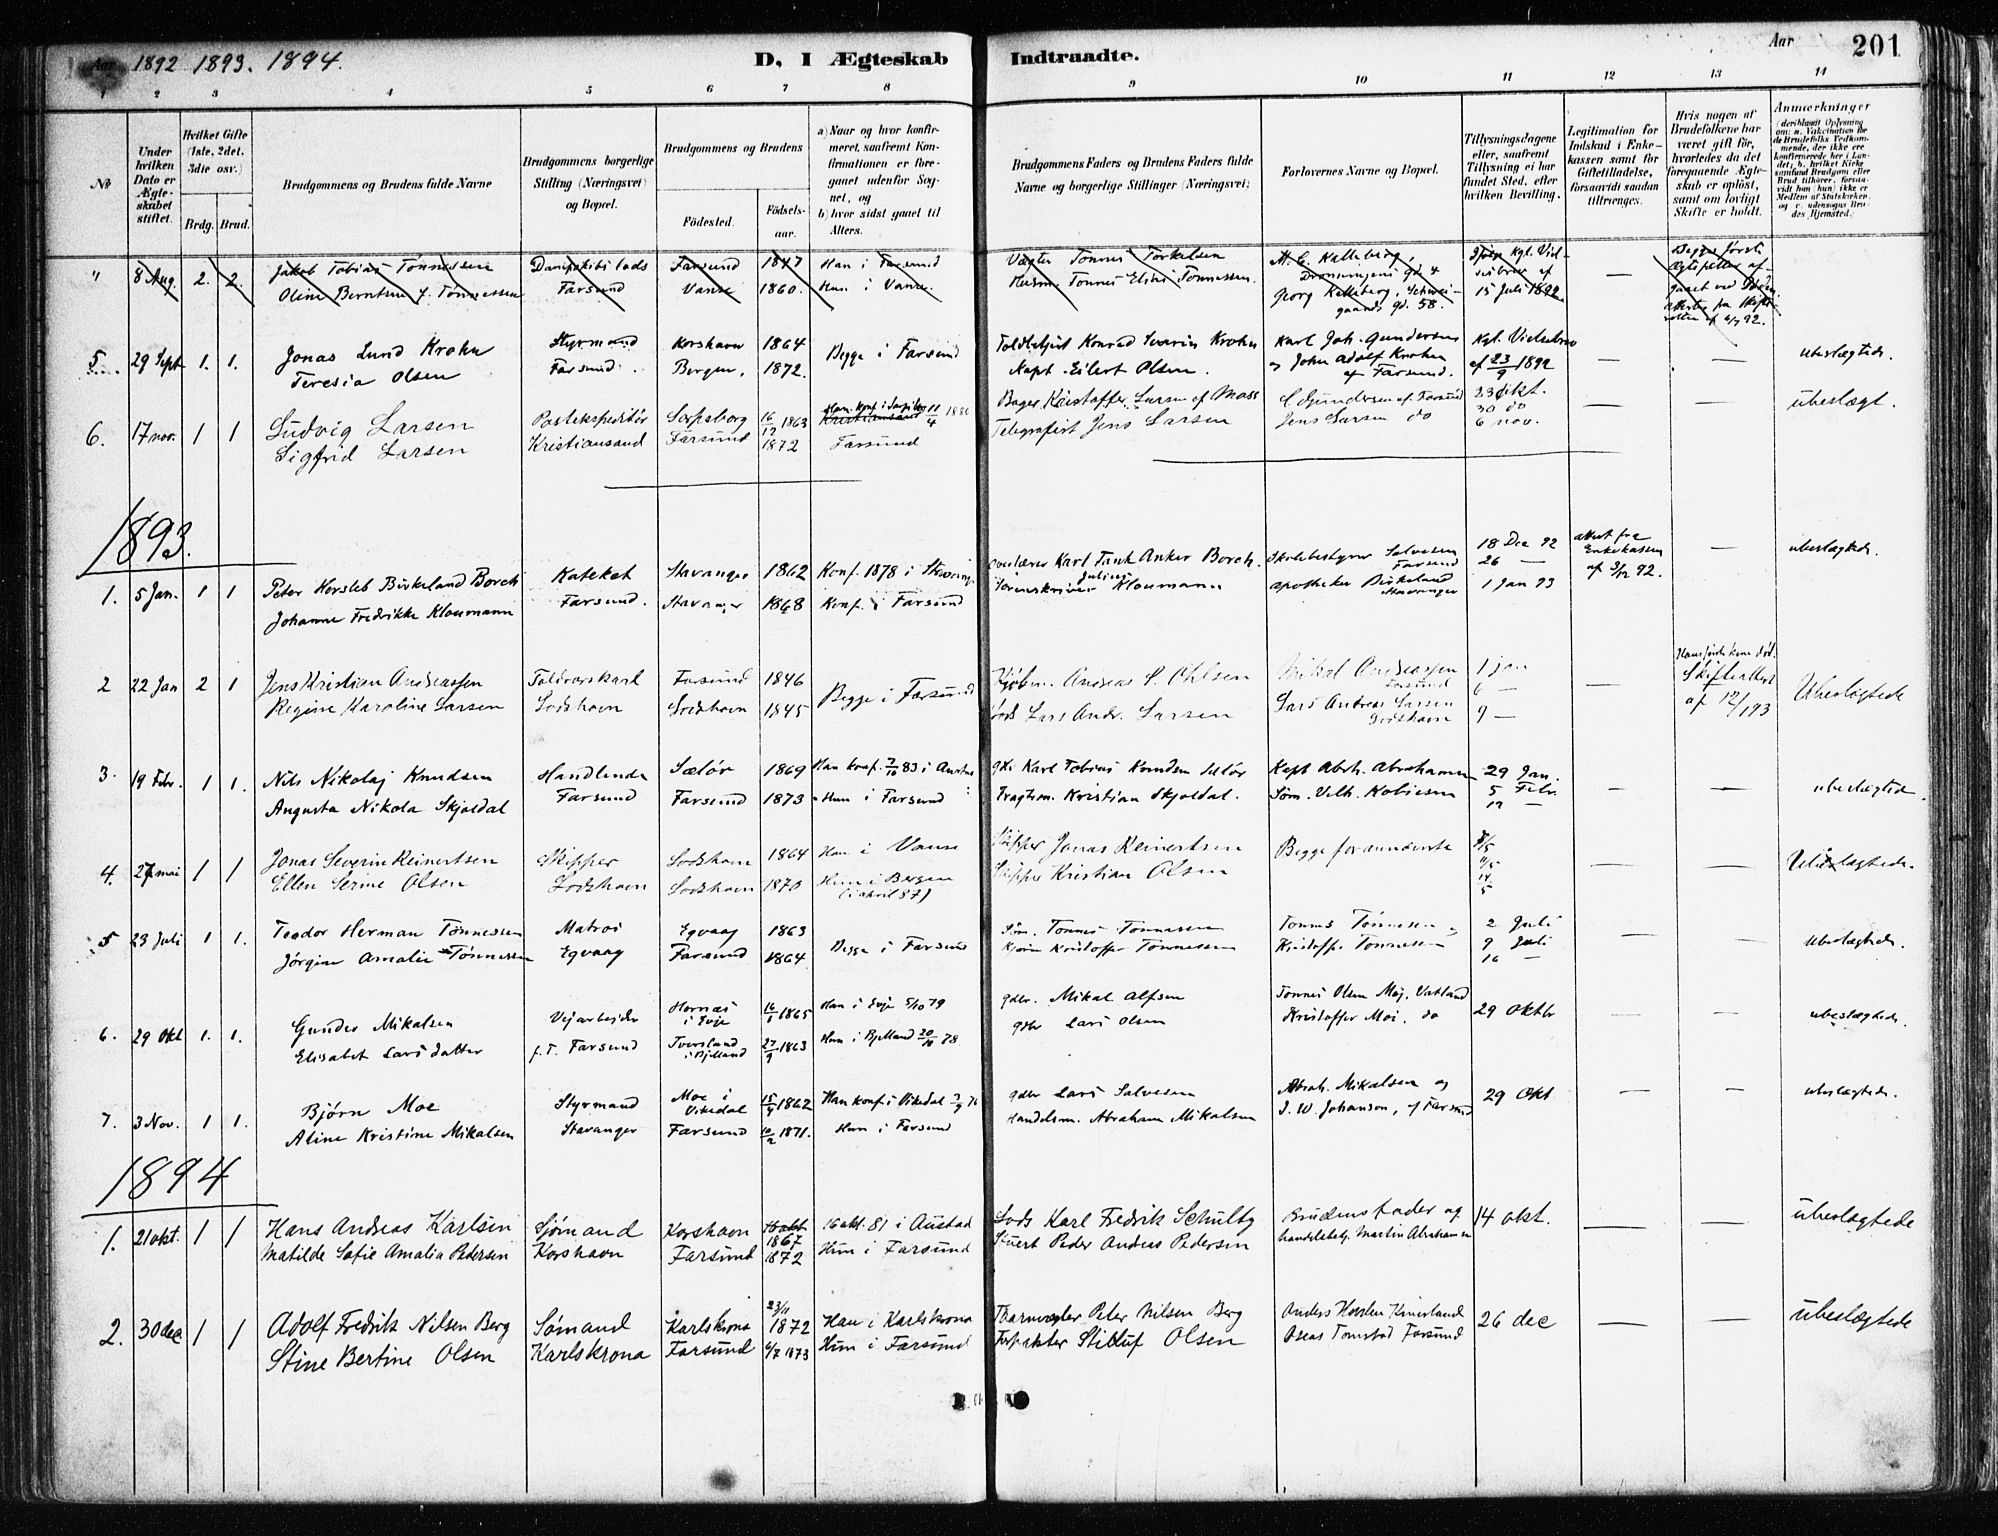 Aar 1892 1893. 1894.
D. I Ægteskab Indtraadte.
Aar 201
1 2 3 4 5 6 7 8 9 10 11 12 13 14
No
Under hvilken Dato er Ægteskabet stiftet.
Hvilket Gifte (1ste, 2det, 3die osv.)
Brdg. Brud.
Brudgommens og Brudens fulde Navne
Brudgommens borgerlige Stilling (Næringsvei) og Bopæl.
Brudgommens og Brudens
Fødested.
Fødsels-aar.
a) Naar og hvor konfirmeret, saafremt Konfirmationen er foregaaet udenfor Sognet, og
b) hvor sidst gaaet til Alters.
Brudgommens Faders og Brudens Faders fulde Navne og borgerlige Stillinger (Næringsvei)
Forlovernes Navne og Bopæl.
Tillysningsdagene eller, saafremt Tillysning ei har fundet Sted, efter hvilken Bevilling.
Legitimation for Indskud i Enkekassen samt for Giftetilladelse, forsaavidt saadan tiltrænges.
Hvis nogen af Brudefolkene har været gift før, hvorledes da det foregaaende Ægteskab er opløst, samt om lovligt Skifte er holdt.
Anmærkninger
" 8 Aug. 2. 2. Jakob Tobias Tønnessen Dampskibslods Farsund 1847 Han i Farsund Vægter Tønnes Torkelsen
Oline Berntsen f. Tønnessen Farsund Vanse 1860. Hun i Vanse. Husm. Tønnes Elias Tønnessen. Georg Kalleberg, 15 Juli 1892 —
5. 29 Sept 1. 1. Jonas Lund Krohn Styrmand Korshavn 1864 Begge i Farsund Toldbetjent Konrad Severin Krohn Karl Joh. Gundersen Kgl. Vielsebrev — — ubeslægtede.
Teresia Olsen Farsund. Bergen, 1872. Kapt. Eilert Olsen. og John Adolf Krohn af Farsund. af 23/9 1892
6. 17 nov. 1 1 Ludvig Larsen Postekspeditør Sarpsborg 16/12 1863 11/4 1880 Bager Kristoffer Larsen af Moss C Gundersen af Farsund 23 okt. — — ubeslægt.
Sigfrid Larsen Kristiansand Farsund 1872 Farsund Telegrafist Jens Larsen Jens Larsen do 30 do
6 nov.
1893.
1. 5 Jan. 1 1 Peter Hersleb Birkeland Borch Kateket Stavanger 1862 Konf. 1878 i Stavanger Overlærer Karl Tank Anker Borch. Skolebestyrer Salvesen Farsund 18 Dec 92 attest fra Enkekassen af 3/12 92. — ubeslægtede.
Johanne Fredrikke Kloumann Farsund. Stavanger 1868 Konf. i Farsund Sorenskriver Julius Kloumann apotheker Birkeland Stavanger 26 —
1 Jan 93
2 22 Jan 2 1 Jens Kristian Andreassen Toldroerskarl Farsund 1846 Begge i Farsund Kjøbm. Andreas S. Ohlsen Mikal Andreassen Farsund 1 jan — Skifteattest af 12/1 93 Ubeslægtede
Regine Karoline Larsen Lodshavn Lodshavn 1845 Lods Lars Andr. Larsen Lars Andreas Larsen Lodshavn 6 —
9 —
3. 19 Febr. 1 1. Nils Nikolaj Knudsen Handlende Sælør 1869 Han konf. 7/10 83 i Austad Karl Tobias Knudsen Sælør Kapt Abrh. Abrahamsen 29 Jan. — — ubeslægtede.
Augusta Nikola Skjoldal Farsund Farsund 1873 Hun i Farsund Fragtm. Kristian Skjoldal. Søm. Vilh. Tobiesen 5 Febr.
12 —
4. 27 mai 1 1 Jonas Severin Reinertsen Skipper Lodshavn 1864 Han i Vanse Skipper Jonas Reinertsen Begge forannævnte — — Ubeslægtede.
Ellen Serine Olsen Lodshavn Lodshavn 1870 Hun i Bergen (i april 87) Skipper Kristian Olsen 14/5
5 23 Juli 1 1. Teodor Herman Tønnessen Matros Egvaag 1863 Begge i Farsund Søm. Tønnes Tønnessen Tønnes Tønnesen og 2 Juli — — ubeslægtede.
Jørgine Amalie Tønnessen Egvaag Farsund 1864. Kristoffer Tønnessen Kristoffer Tønnesen 9 Juli
16 —
6. 29 Okt 1. 1. Gunder Mikalsen Vejarbejder Hornæs i Evje 16/1 1865 Han i Evje 5/10 79 gdbr. Mikal Alfsen Tønnes Olsen Moj, Vatland 29 Oktb — — ubeslægtede.
Elisabet Larsdatter f.T. Farsund Tversland i Bjelland 27/9 1863 Hun i Bjelland 20/10 78. gdbr Lars Olsen Kristoffer Moi. do
7. 3 Nov. 1 1. Bjørn Moe Styrmand Moe i Vikedal 15/4 1862 Han konf i Vikedal gdbr Lars Salvesen Abrah. Mikalsen og 29 Okt — — ubeslægtede.
Aline Kristine Mikalsen Stavanger Farsund 10/2 1871. Hun i Farsund Handelsm. Abraham Mikalsen J. W. Johanson, af Farsund
1894
1. 21 okt. 1 1 Hans Andreas Karlsen Sjømand Korshavn 1867 16 okt. 81 i Austad Lods Karl Fredrik Schultz Brudens fader og 14 okt. — — ubeslægtede
Matilde Sofie Amalia Pedersen Korshavn Farsund 1872 Hun i Farsund Stuert Peder Andreas Pedersen handelsbetj. Martin Abrahamsen
2. 30 dec 1 1 Adolf Fredrik Nilsen Berg Sømand Karlskrona 23/11 1872 Han i Karlskrona Peter Nilsen Berg 26 dec — — ubeslægtede
Stine Bertine Olsen Karlskrona Farsund 6/7 1873 Hun i Farsund Olsen Oseas Tomstad Farsund